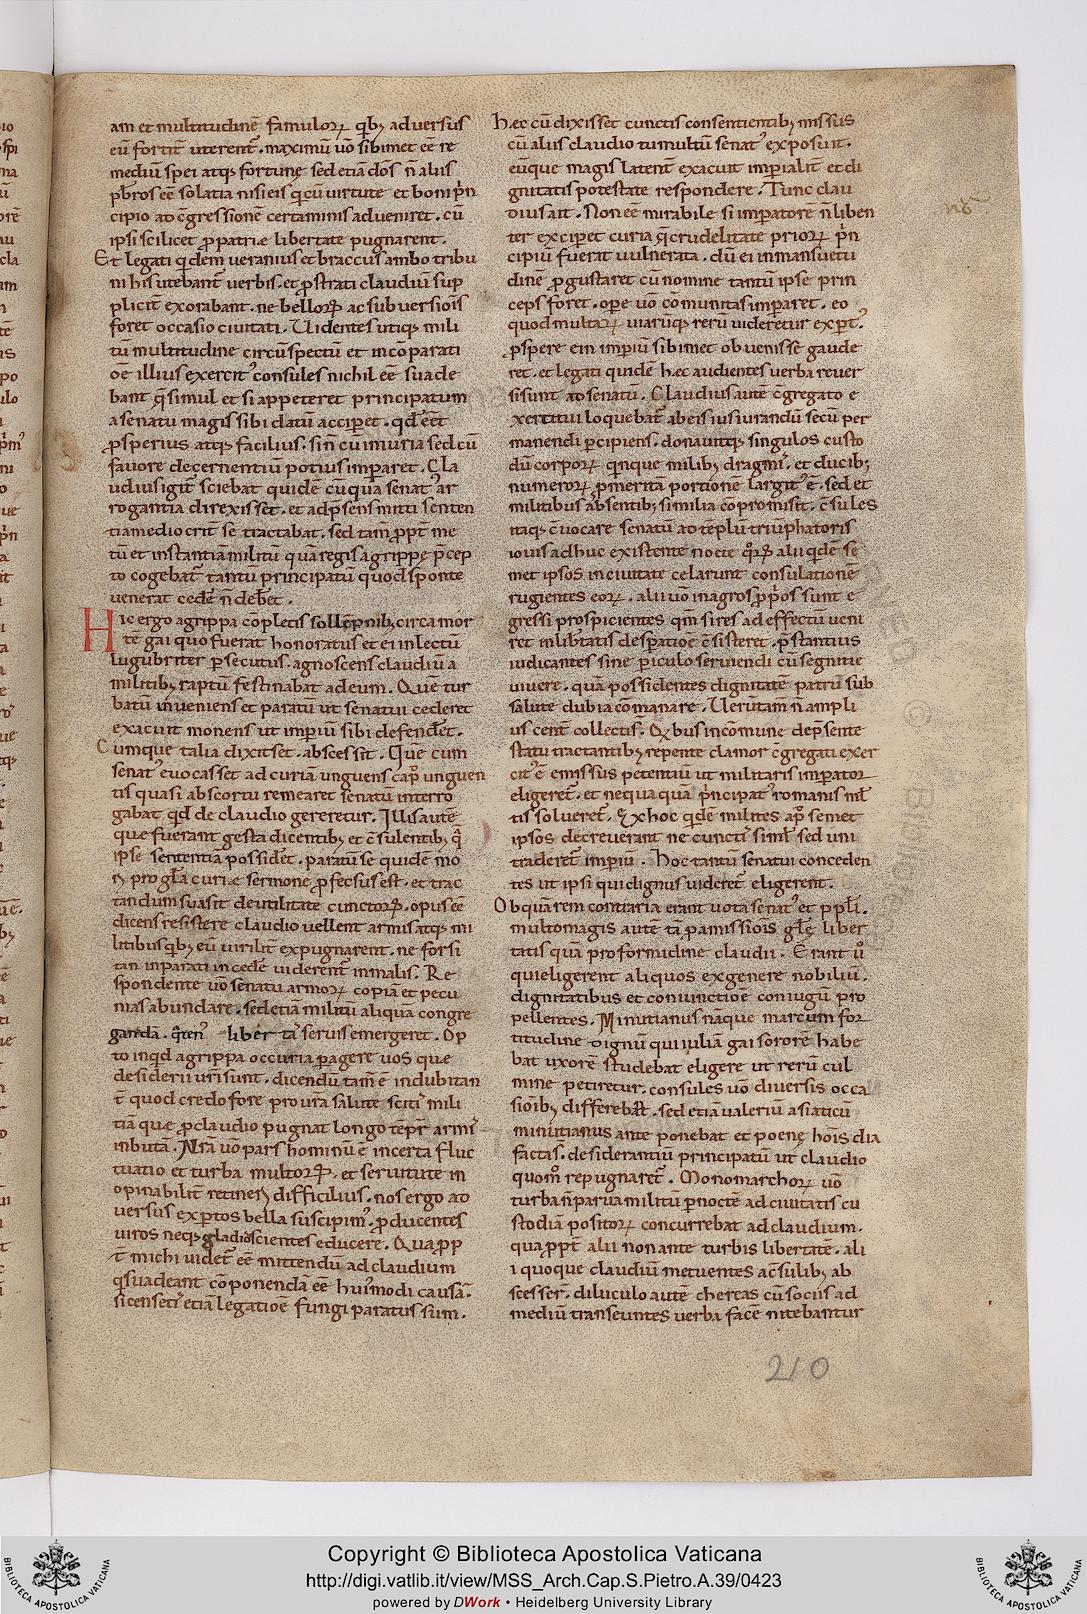 am et multitudinē famuloꝝ qͥbꝫ adversus
eū fortit̄ uterent᷑. maximū u͛o sibimet eē re
mediū spei atqꝫ fortunę sed etiā dōs n̄ aliis
p̄bros eē solatia nisi eis q̇ cū uirtute et boni p̄n
cipio ad cgressionē certaminis aduenirēt. cū
ipsi scilicet ꝓ patriæ libertate pugnarent.
Et legati qͥdem ueranius et braccus ambo tribu
ni his utebant᷑ uerbis. et ꝓstrati claudiū sup
plicit̄ exorabant. ne belloꝝ ac subuersiōis
foret occasio ciuitati. Uidentes utiqꝫ mili
tū multitudine circūspectū et incōparati
oē illius exercitꝰ consules nichil eē suade
bant q̄ simul et si appeteret principatum
a senatu magis sibi datū acciperet. qd̄ eēt
ꝓsperius atqꝫ facilius. sin̄ cū iniuria sed cū
fauore decernentiū potius imparet. Cla
udius igit᷑ sciebat quidē cū qua senatꝰ ar
rogantia direxisset. et ad p̄sens mitti senten
tia mediocrit̄ se tractabat. sed tam̄ ꝓpt̄ me
tū et instantiā militū quā regis agrippę p̄cep
to cogebat᷑ tantū principatū quod sponte
uenerat cedē n̄ debet.
Hic ergo agrippa copletis sollēpnibꝫ circa mor
tē gai quo fuerat honoratus et ei in lectū
lugubriter ꝑsecutus. agnoscens claudiū a
militibꝫ raptū festinabat ad eum. Quē tur
batū inueniens et paratū ut senatui cederet
exacuit monens ut imperiū sibi defendēt.
Cumque talia dixisset. abscessit. Quē cum
senatꝰ euocasset ad curiā unguens capͥ unguen
tis quasi abscortu remearet senatū interro
gabat qd̄ de claudio gereretur. Illis autē
que fuerant gesta dicentibꝫ et c̄sulentibꝫ q̄
ipse sententiā possidēt. paratū se quidē mo
ri pro gl̄a curiæ sermone ꝓfessus est. et trac
tandum suasit de utilitate cunctoꝝ. opus eē
dicens resistere claudio uellent armis atqꝫ mi
litibus qͥbꝫ eū uirilit̄ expugnarent. ne forsi
tan inparati incedē uiderent᷑ in malis. Re
spondente u͛o senatu armoꝝ copiā et pecu
nias abundare. sed etiā militū aliqua congre
gandā. q̄ten̄ libertā seruis emergeret. Op
to inqd agrippa o curia ꝑagere uos que
desiderii ur̄i sunt. dicendū tam̄ ē indubitan
t̄ quod credo fore pro ur̄a salute scit̄ mili
tiā que ꝓ claudio pugnat longo tēpr̄ armis
inbutā. Nr̄ā u͛o pars hominū ē incerta fluc
tuatio et turba multoꝝ. et seruitute in
opinabilit̄ retineri difficilius. nos ergo ad
uersus exꝑtos bella suscipimꝰ. ꝓducentes
uiros neqꝫ gladios scientes educere. Qua ꝓp
t̄ michi uidet᷑ eē mittendū ad claudium
q̇ suadeant cōponendā eē huiꝰmodi causā.
si censetis etiā legatioē fungi paratus sum.
Hæc cū dixisset cunctis consentientibꝫ missus
cū aliis claudio tumultū senatꝰ exposuit.
eūque magis latent̄ exacuit imperialit̄ et di
gnitatis potestate respondere. Tunc clau
dius ait. Non eē mirabile si imperatorē n̄ liben
ter exciperet curia q̄ crudelitate prioꝝ p̄n
cipiū fuerat uulnerata. dū ei in mansuetu
dinē ꝓgustaret cū nomine tantū ipse prin
ceps foret. opē u͛o cōmunitas imparet. eo
quod multaꝝ uiariūqꝫ rerū uideretur exꝑtꝰ.
ꝓspere ei n̄ impiū sibimet obuenisse gaude
ret. et legati quidē hæc audientes uerba reuer
si sunt ad senatū. Claudius autē c̄gregato e
xercitui loquebat᷑ ab eis iusiurandū secū per
manendi ꝑcipiens. donauitqꝫ singulos custo
dū corpoꝝ quinque milibꝫ dragmis. et ducibꝫ
numeroꝝ ꝓ merita portionē largitꝰ ē. sed et
militibus absentibꝫ similia cōpromisit. c̄sules
itaqꝫ c̄uocare senatū ad tēplū triūphatoris
iouis adhuc existente nocte qͣꝝ alii qͥdē se
met ipsos in ciuitate celarunt consulationē
fugientes eoꝝ. alii u͛o in agros ꝓpͥos sunt e
gressi prospicientes qm̄ si res ad effectū ueni
ret in lib̄tatis despatioē c̄sisteret. p̄stantius
iudicantes sine ꝑiculo seruiendi cū segnitie
uiuere. quā possidentes dignitatē patrū sub
salute dubia cōmanare. Uerūtam̄ n̄ ampli
us centū collectis. Qͥbus in cōmune de p̄sente
statu tractantibꝫ repente clamor c̄gregati exer
citꝰ ē emissus petentiū ut militaris imperator
eligeret᷑. et nequaquā p̄ncipatꝰ romanis ml̄
tis solueret᷑. Ex hoc qͥdē milites apͥ semet
ipsos decreuerant ne cunctis siml̄ sed uni
traderet᷑ imperiū. hoc tantū senatui conceden
tes ut ipsi qui dignus uideret᷑ eligerent.
Ob quā rem contraria erant uota senatꝰ et ppl̄i.
multomagis autē tā p amissiōis gl̄ę liber
tatis quā pro formidine claudii. Erant u͛o
qui eligerent aliquos ex genere nobiliū.
dignitatibus et coniunctioē coniugū pro
pellentes. Minutianus nāque marcum for
titudine dignū qui iuliā gai sororē habe
bat uxorē studebat eligere ut rerū cul
mine petiretur. consules u͛o diuersis occa
siōibꝫ differebāt. sed etiā ualeriū asiaticū
minutianus ante ponebat et poenę hōis dia
factas. desiderantiū principatū ut claudio
quomͦ repugnaret᷑. Monomarchoꝝ u͛o
turba n̄ parua militū ꝑ noctē ad ciuitatis cu
stodiā positoꝝ concurrebat ad claudium.
qua ꝓpt̄ alii non ante turbis libertatē. ali
i quoque claudiū metuentes ac̄sulibꝫ ab
scesser̄. diluculo autē chereas cū sociis ad
mediū transeuntes uerba facē nitebantur
210
Copyright © Biblioteca Apostolica Vaticana
http://digi.vatlib.it/view/MSS_Arch.Cap.S.Pietro.A.39/0423
powered by DWork • Heidelberg University Library
BIBLIOTECA APOSTOLICA VATICANA
BIBLIOTECA APOSTOLICA VATICANA